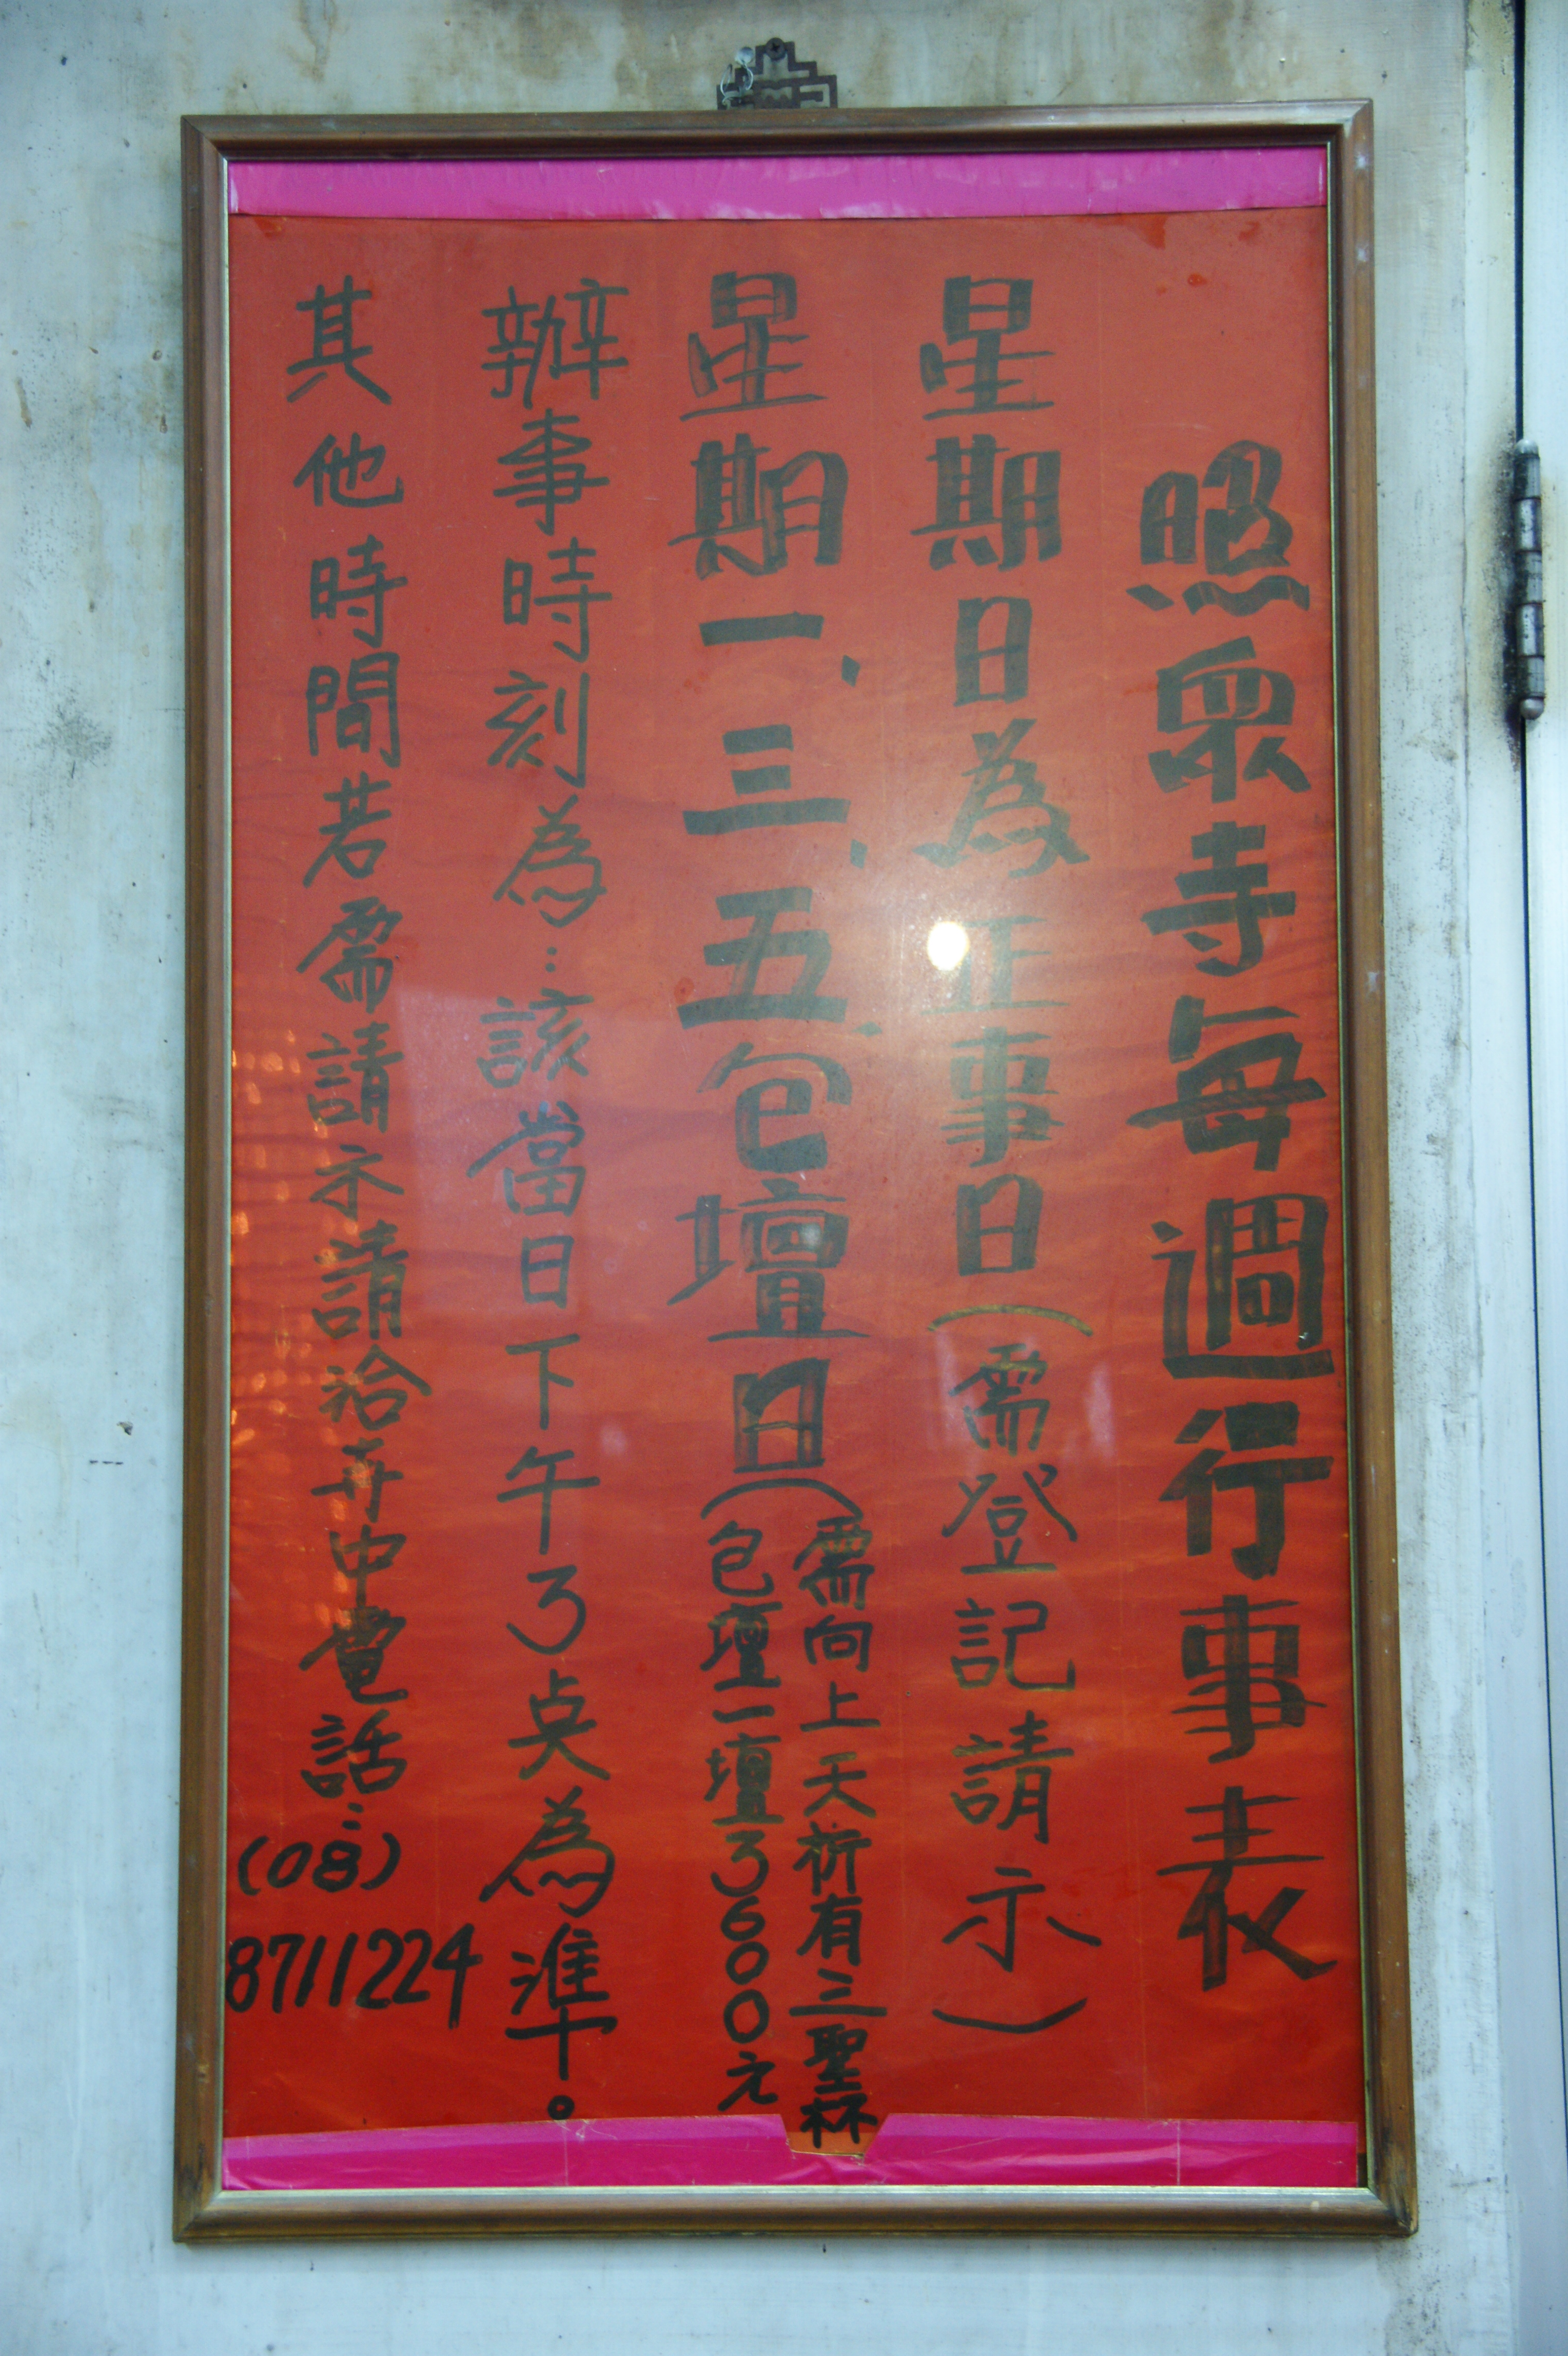 照眾寺每週行事表
星期日為正事日(需登記請示)
星期一、三、五、包壇日(需向上天祈有三聖杯
(包壇一壇3600元
辦事時刻為：該當日下午3点為準。
其他時間若需請示請洽寺中電話：(08)
8711224